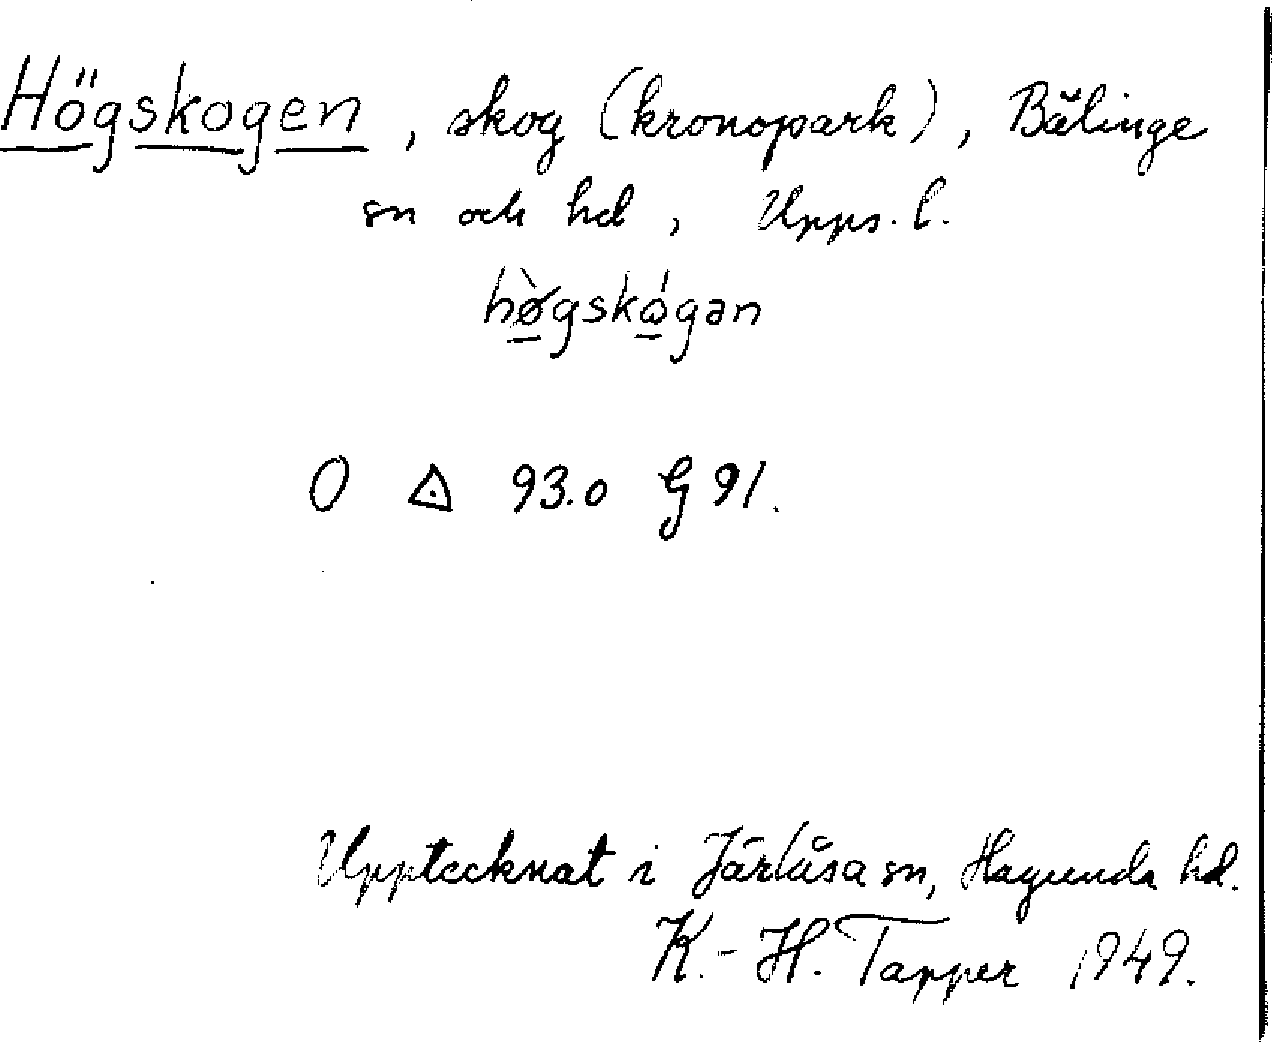 Högskogen, skog (kronopark), Bälinge
sn och hd, Upps. l.
hø̀gskógan
O ◬ 93.0 G 91.
Upptecknat i Järlåsa sn, Hagunda hd.
K.-H. Tapper 1949.